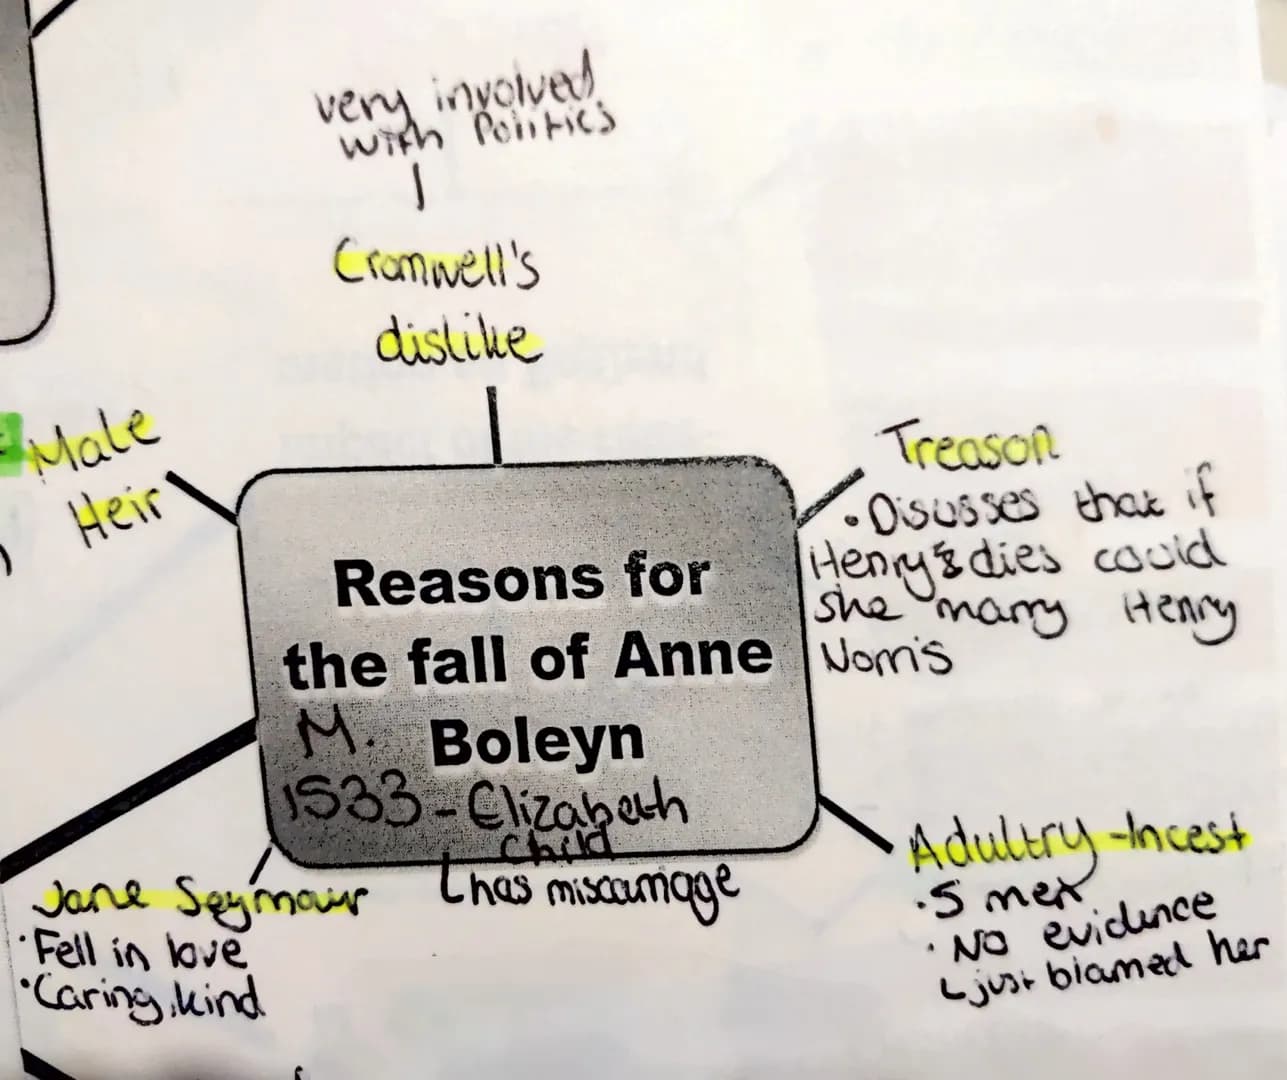 very involved
with Politics
Cromwell's
dislike
Male
Heir
Treason
• Disusses that if
Henry 8 dies could
she marry Henry
Norris
Reasons for
the fall of Anne
Boleyn
M.
1533 - Elizabeth
Child
has miscarriage
Jane Seymour
• Fell in love
• Caring, kind
Adultry - Incest
• 5 men
• No evidence
just blamed her